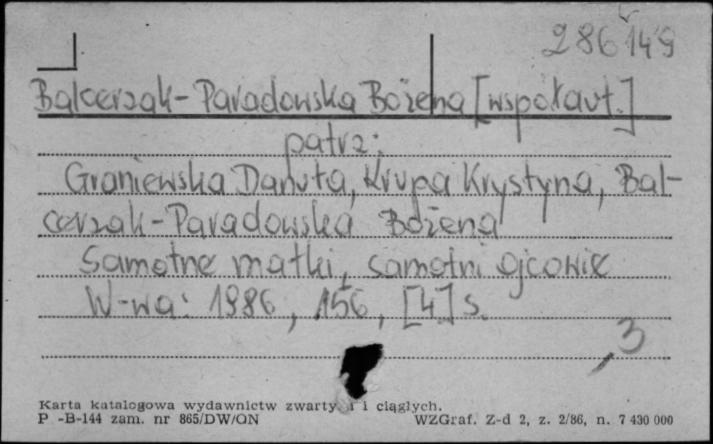 286149
Balcerzak-Paradowska Bożena [współaut.]
patrz:
Graniewska Danuta, Krupa Krystyna, Bal-
cerzak-Paradowska Bożena
Samotne matki, samotni ojcowie
W-wa: 1986, 156, [4] s.
3
Karta katalogowa wydawnictw zwarty i ciągłych.
P -B-144 zam. nr 865/DW/ON WZGraf. Z-d 2, z. 2/86, n. 7 430 000